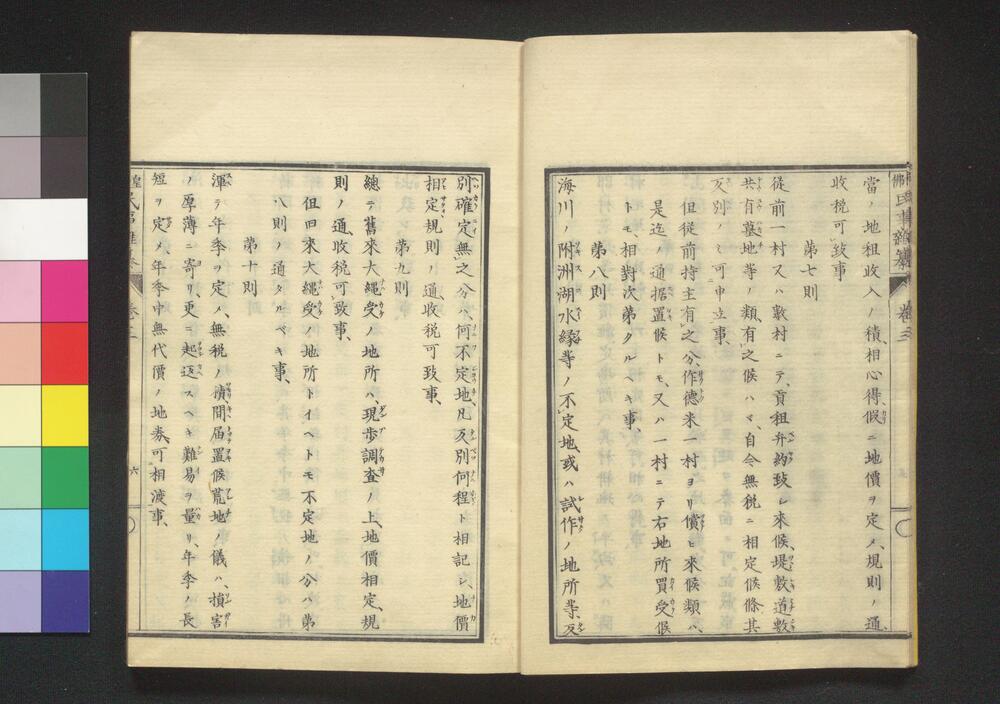 當ノ地租收入ノ積、相心得、假ニ地價ヲ定メ、規則ノ通、
收税可致事
第七則
従前一村又ハ數村ニテ、貢租弁約致シ來候、堤敷道敷
共有墓地等ノ類有之候ハヾ、自今無税ニ相定候條其
反別ノミ可申立事、
但従前持主有之分、作徳米一村ヨリ償ヒ來候類ハ、
是迄ノ通据置候トモ、又ハ一村ニテ右地所買受候
トモ、相對次第タルヘキ事、
第八則
海川ノ附洲湖水縁等ノ不定地、或ハ試作ノ地所等、反
別確定無之分ハ、何不定地、凡反別何程ト相記シ、地價
相定規則ノ通、收税可致事、
第九則
總テ舊來大縄受ノ地所ハ、現歩調査ノ上、地價相定、規
則ノ通、收税可致事、
但旧來大縄受ノ地所トイヘトモ不定地ノ分ハ第
八則ノ通タルベキ事、
第十則
渾テ年季ヲ定メ、無税ノ積、聞届置候荒地ノ儀ハ、損害
ノ厚薄ニ寄リ、更ニ起返スヘキ難易ヲ量リ、年季ノ長
短ヲ定メ、年季中無代價ノ地券可相渡事、
六